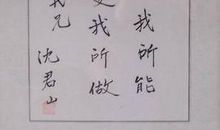 我所能
我所做
我兄
沈君山